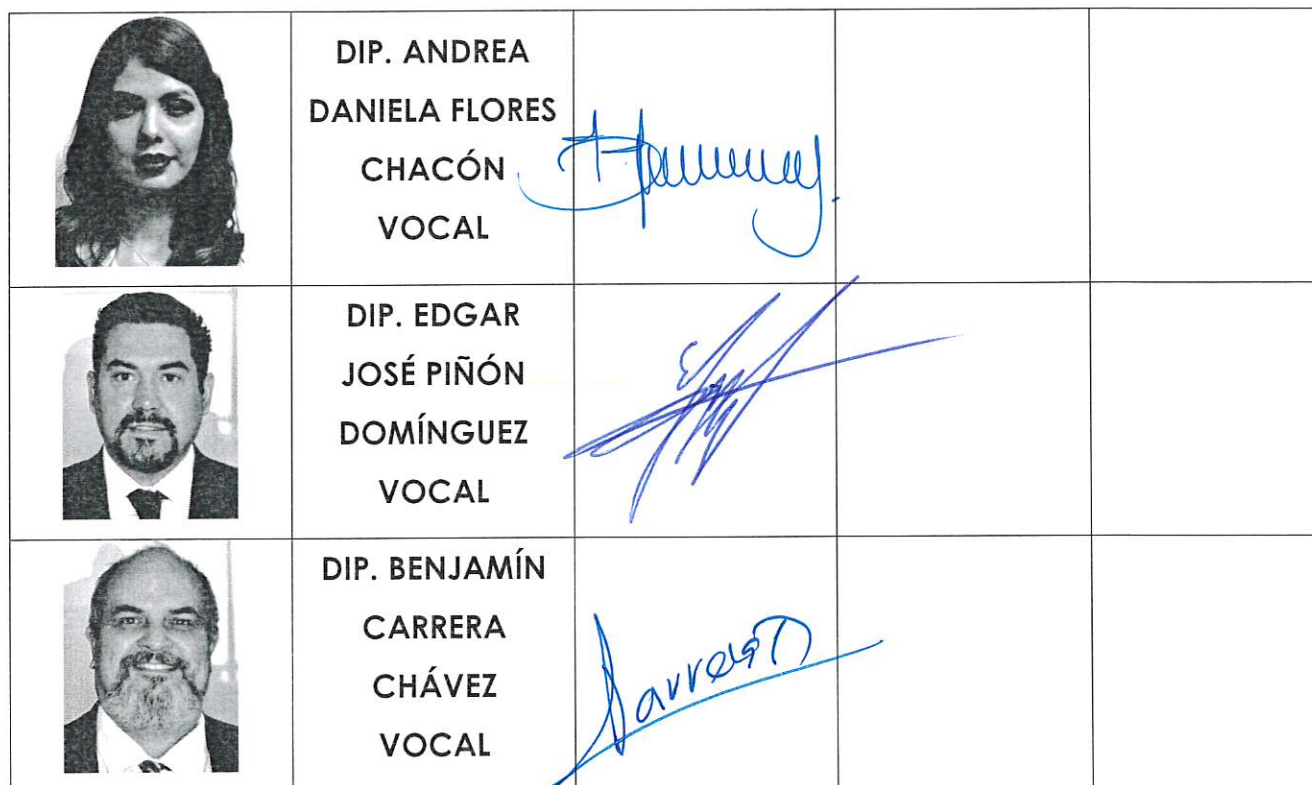 DIP. ANDREA
DANIELA FLORES
CHACÓN
VOCAL
DIP. EDGAR
JOSÉ PIÑÓN
DOMÍNGUEZ
VOCAL
DIP. BENJAMÍN
CARRERA
CHÁVEZ
VOCAL